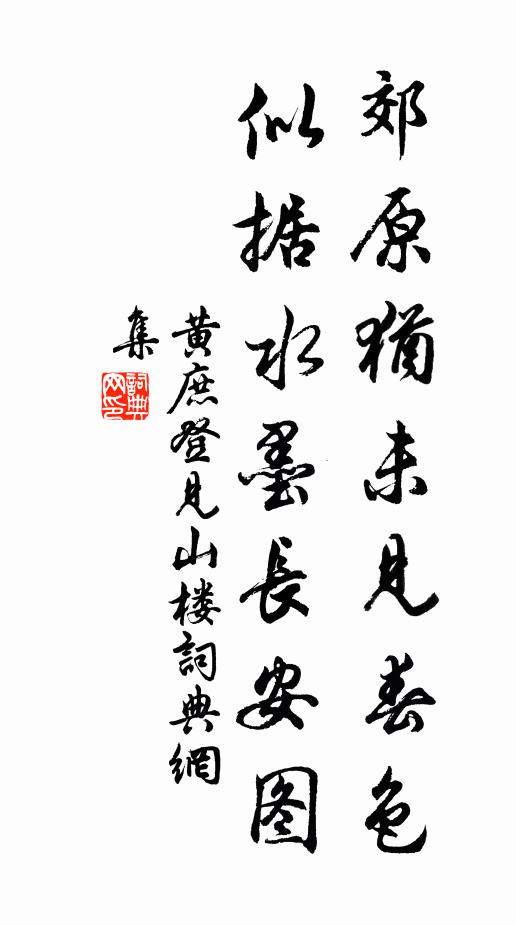 郊原猶未見春色
似据水墨長安图
黄庶登見山楼詞典網
集
詞典网印